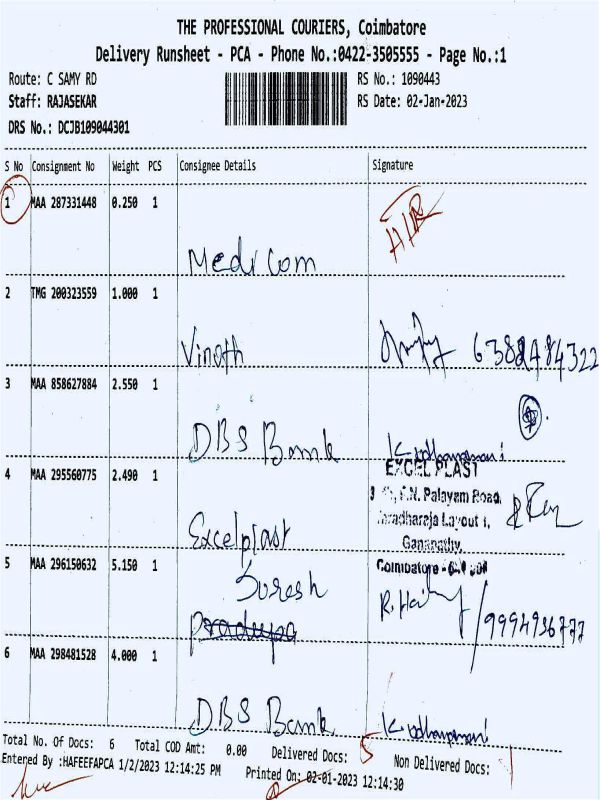 THE PROFESSIONAL COURIERS, Coimbatore
Delivery Runsheet - PCA - Phone No.:0422-3505555 - Page No.:1
Route: C SAMY RD
RS No.: 1090443
Staff: RAJASEKAR
RS Date: 02-Jan-2023
DRS No.: DCJB109044301
S No Consignment No Weight PCS Consignee Details Signature
1 MAA 287331448 0.250 1
Medicom
2 TMG 200323559 1.000 1
Vinoth
3 MAA 858627884 2.550 1
DBS Bank
4 MAA 295560775 2.490 1
EXCEL PLAST
Palayam Road,
Layout
Ganapathy,
Excelplast
5 MAA 296150632 5.150 1
Coimbatore
Suresh
9994936777
6 MAA 298481528 4.000 1
DBS Bank
Total No. Of Docs: 6 Total COD Amt: 0.00 Delivered Docs: 5 Non Delivered Docs: 1
Entered By :HAFEEFAPCA 1/2/2023 12:14:25 PM Printed On: 02-01-2023 12:14:30